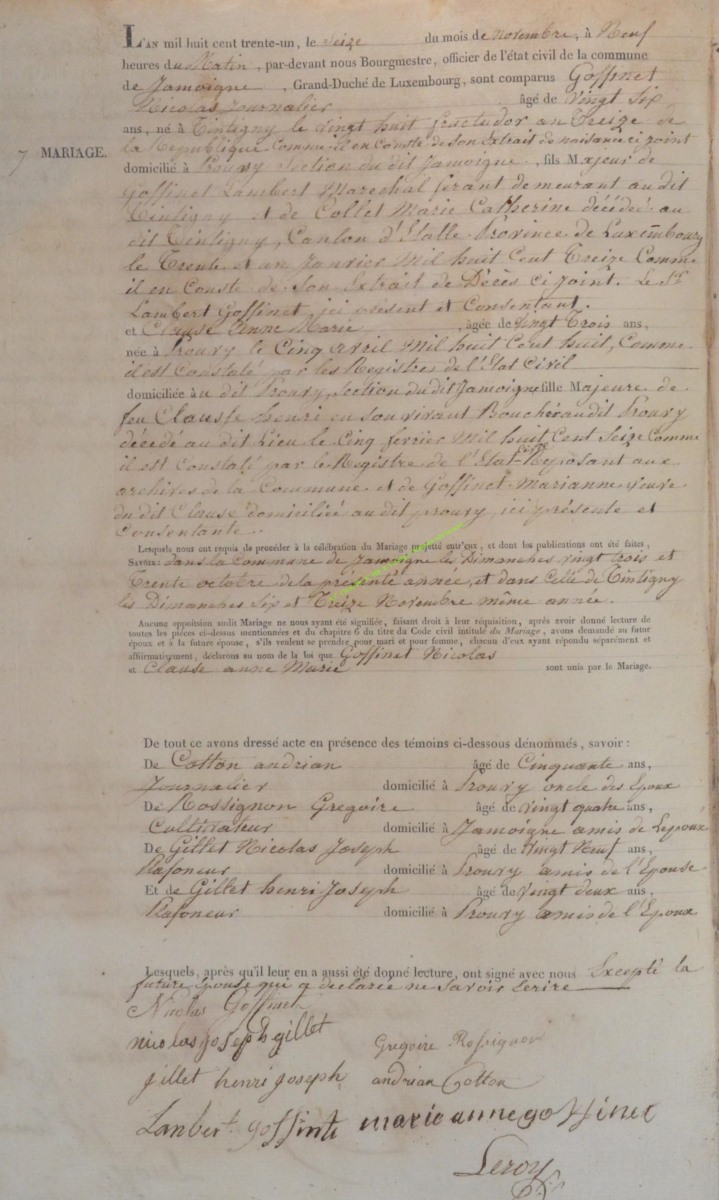 L'AN mil huit cent trente-un, le Seize du mois de Novembre, à Neuf
heures du Matin, par-devant nous Bourgmestre, officier de l'état civil de la commune
de Jamoigne, Grand-Duché de Luxembourg, sont comparus Goffinet
Nicolas Journalier âgé de Vingt Six
ans, né à Tintigny le Vingt huit fructudor an Treize de
la République Comme il en Conste de son Extrait de naisance ci joint
7 MARIAGE.
domicilié à Prouvy Section du dit Jamoigne, fils Majeur de
Goffinet Lambert Marechal ferant demeurant au dit
Tintigny et de Collet Marie Catherine décédée au
dit Tintigny, Canton d'Etalle Province de Luxembourg
le Trente et un Janvier Mil huit Cent Treize Comme
il en Conste de son Extrait de Décès ci joint. Le Sr
Lambert Goffinet, ici présent et Consentant.
et Clause Anne Marie, âgée de Vingt Trois ans,
née à Prouvy le Cinq Avril Mil huit Cent huit, Comme
il est Constaté par les Registres de l'Etat Civil
domiciliée au dit Prouvy, Section du dit Jamoigne fille Majeure de
feu Clause henri en son vivant Boucher au dit Prouvy
décédé au dit Lieu le Cinq fevrier Mil huit Cent Seize Comme
il est Constaté par le Registre de l'Etat Civil Reposant aux
archives de la Commune et de Goffinet Marianne veuve
du dit Clause domiciliée au dit prouvy, ici présente et
Consentante.
Lesquels nous ont requis de procéder à la célébration du Mariage projetté entr'eux, et dont les publications ont été faites,
SAVOIR: dans la Commune de Jamoigne les Dimanches vingt trois et
Trente octobre de la présente année, et dans Celle de Tintigny
les Dimanches Six et Treize Novembre même année.
Aucune opposition audit Mariage ne nous ayant été signifiée, faisant droit à leur réquisition, après avoir donné lecture de
toutes les pièces ci-dessus mentionnées et du chapitre 6 du titre du Code civil intitulé du Mariage, avons demandé au futur
époux et à la future épouse, s'ils veulent se prendre pour mari et pour femme, chacun d'eux ayant répondu séparément et
affirmativement, déclarons au nom de la loi que Goffinet Nicolas
et Clause anne Marie sont unis par le Mariage.
De tout ce avons dressé acte en présence des témoins ci-dessous dénommés, savoir:
De Cotton andrian âgé de Cinquante ans,
Journalier domicilié à Prouvy oncle des Epoux
De Rossignon Gregoire âgé de Vingt quatre ans,
Cultivateur domicilié à Jamoigne amis de Lepoux
De Gillet Nicolas Joseph âgé de Vingt Neuf ans,
Plafoneur domicilié à Prouvy amis de l'Epouse
Et de Gillet henri Joseph âgé de Vingt deux ans,
Plafoneur domicilié à Prouvy amis de l'Epoux
Lesquels, après qu'il leur en a aussi été donné lecture, ont signé avec nous Excepté la
future Epouse qui a déclarée ne savoir Ecrire
Nicolas Goffinet
nicolas joseph gillet Gregoire Rossignon
jillet henri joseph andrian Cotton
Lanbert goffinte marie anne goffinet
Leroy